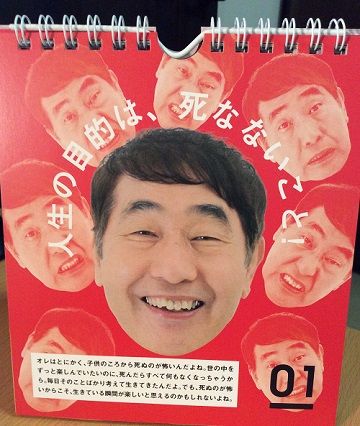 人生の目的は、死なないこと!
オレはとにかく、子供のころから死ぬのが怖いんだよね。世の中を
ずっと楽しんでいたいのに、死んだらすべて何もなくなっちゃうか
ら。毎日そのことばかり考えて生きてきたんだよ。でも、死ぬのが怖
いからこそ、生きている瞬間が楽しいと思えるのかもしれないよね。
01